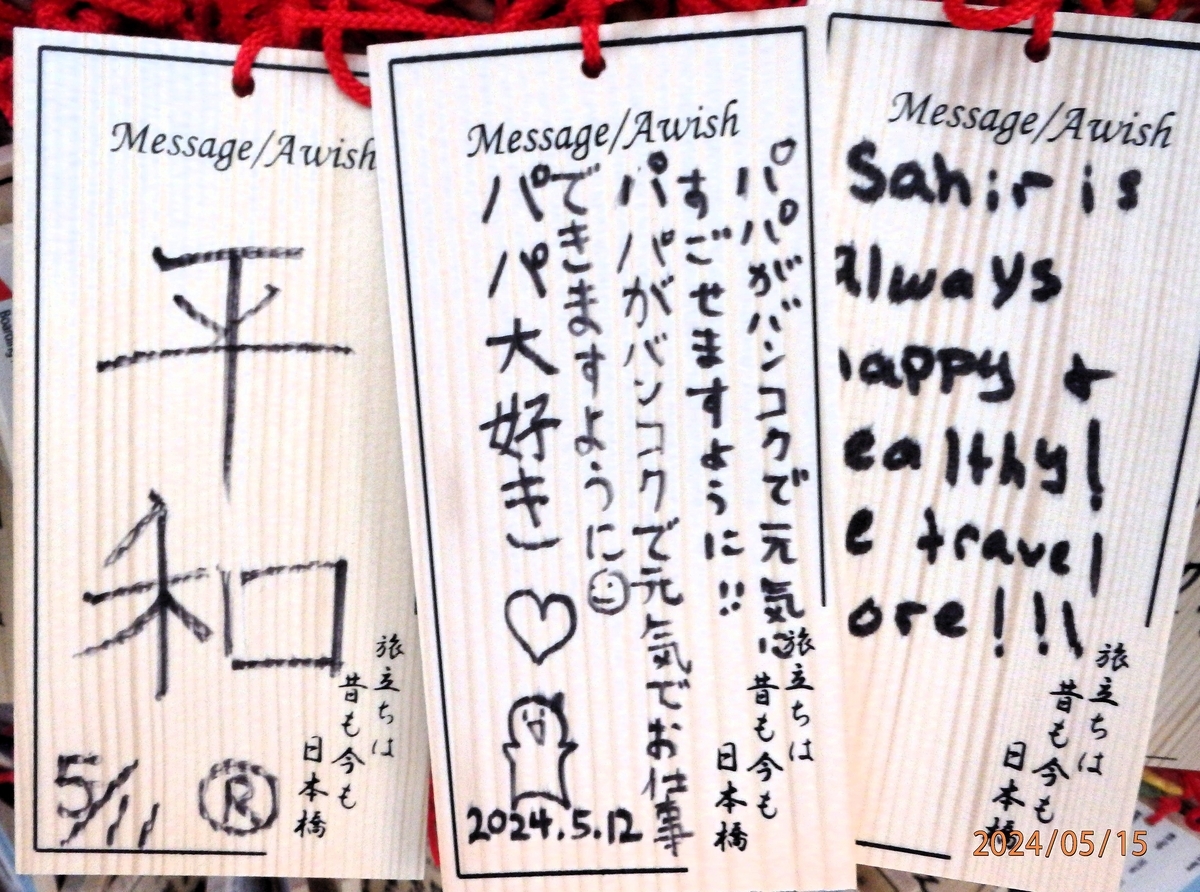 Message/Awish
平和
5/11
R
旅立ちは
昔も今も
日本橋
Message/Awish
パパがバンコクで元気に
すごせますように!!
パパがバンコクで元気でお仕事
できますように
パパ大好き
2024.5.12
旅立ちは
昔も今も
日本橋
Message/Awish
Sahir is
always
appy &
ealthy!
e travel
ore!!!
旅立ちは
昔も今も
日本橋
2024/05/15